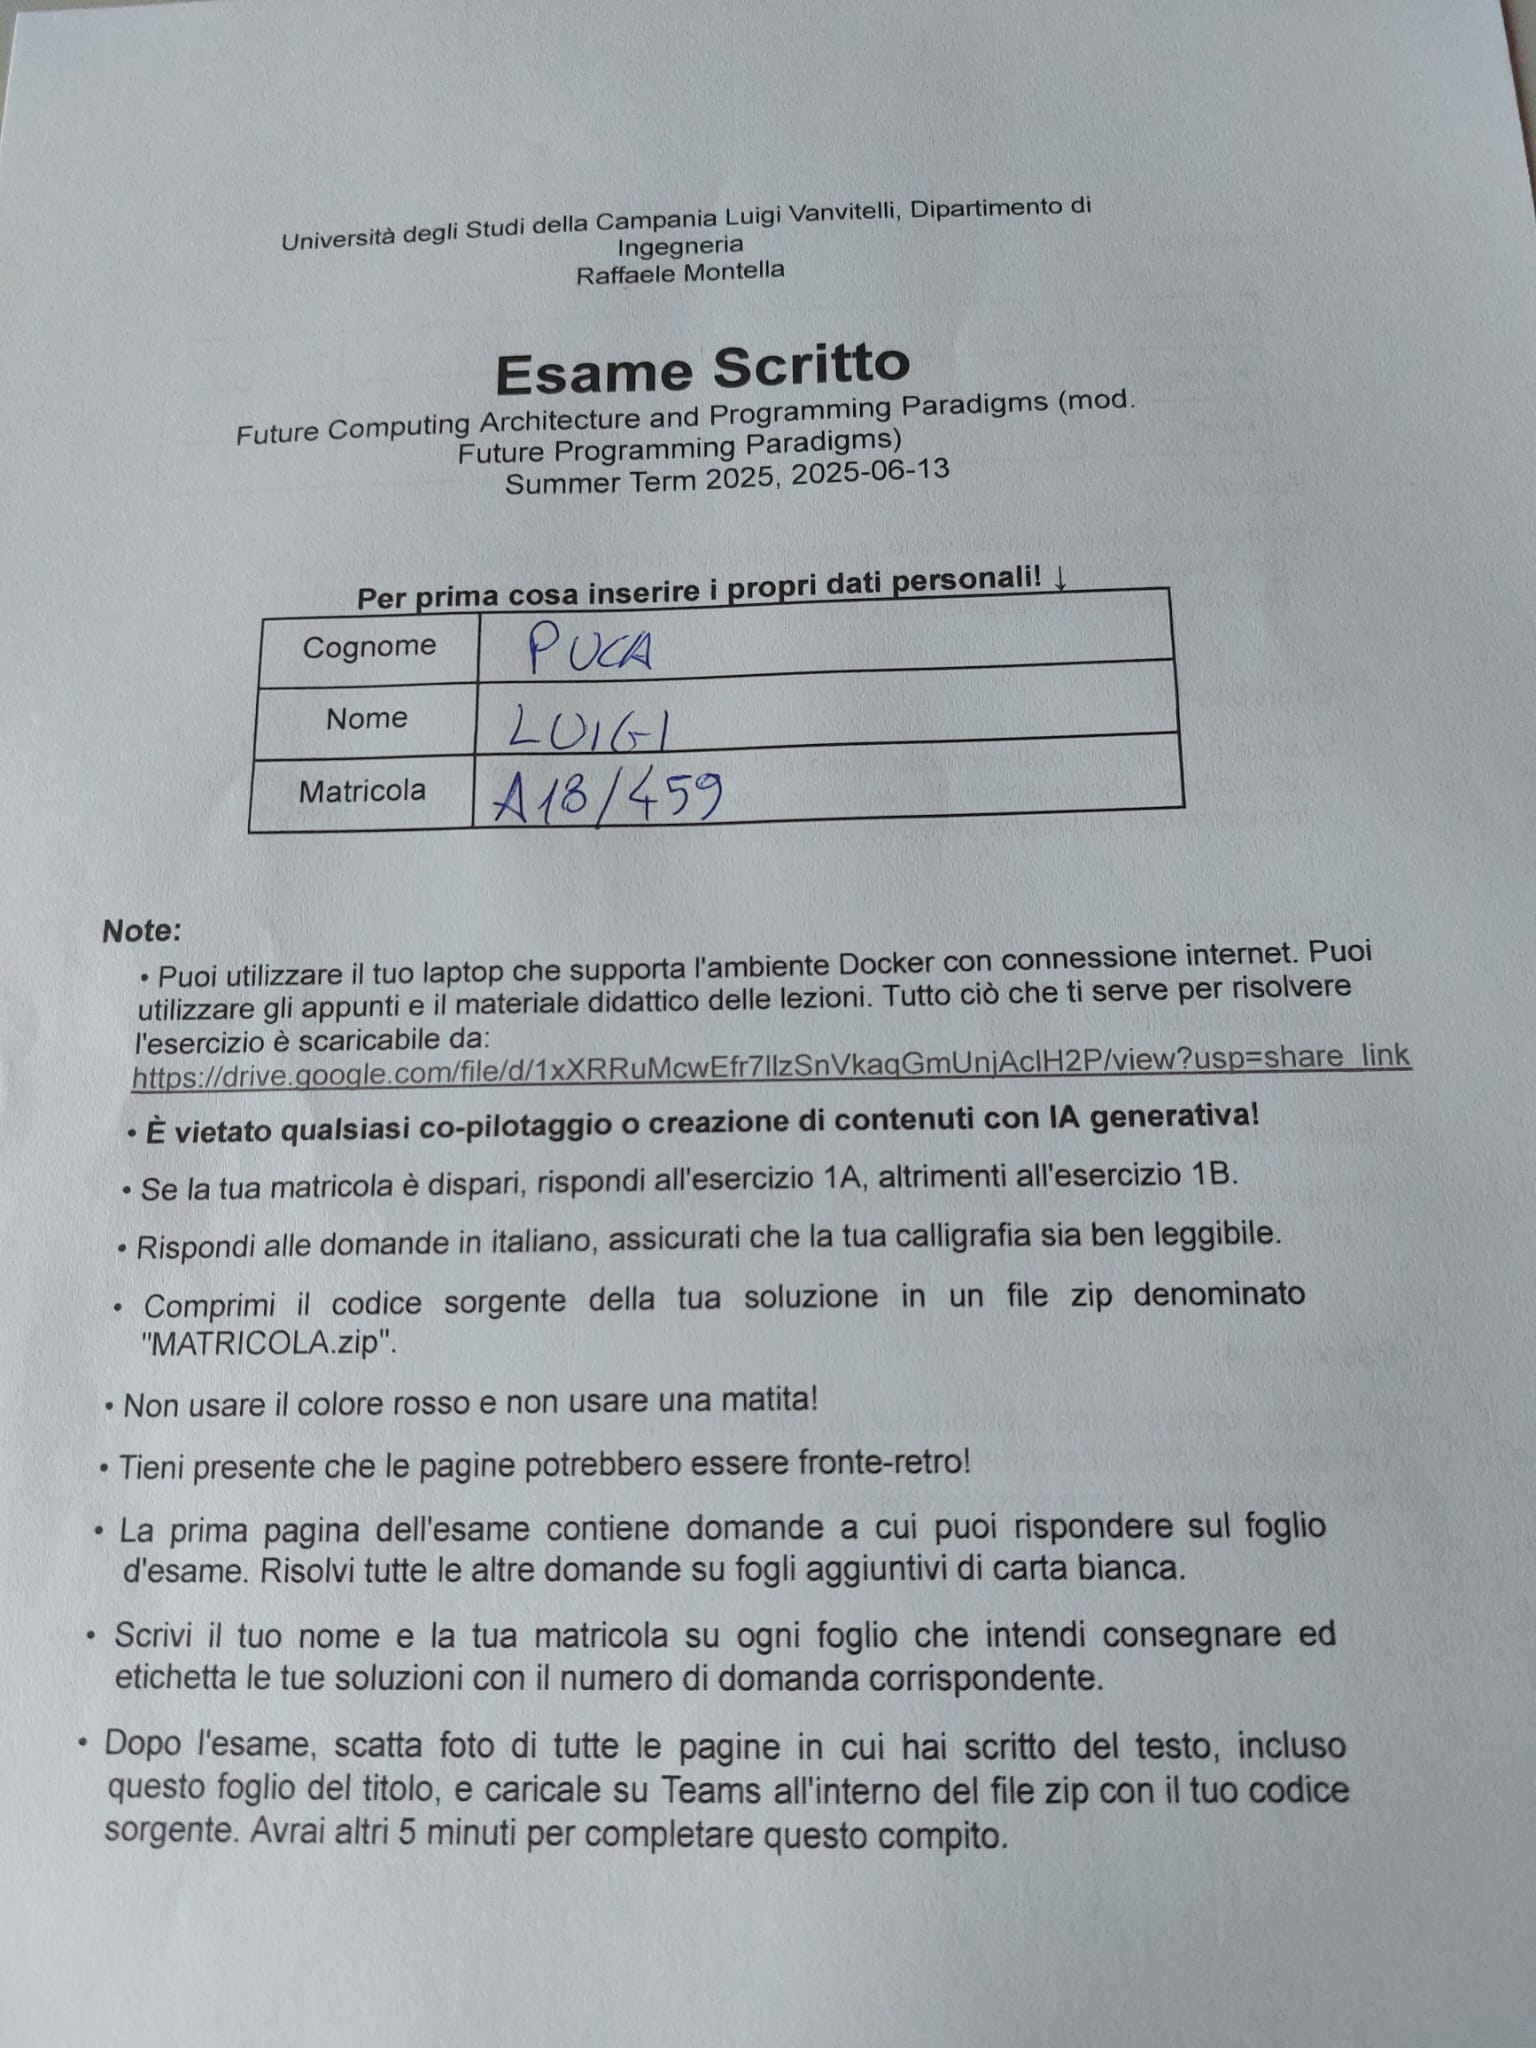 Università degli Studi della Campania Luigi Vanvitelli, Dipartimento di
Ingegneria
Raffaele Montella
Esame Scritto
Future Computing Architecture and Programming Paradigms (mod.
Future Programming Paradigms)
Summer Term 2025, 2025-06-13
Per prima cosa inserire i propri dati personali! ↓
Cognome PUCA
Nome LUIGI
Matricola A18/459
Note:
• Puoi utilizzare il tuo laptop che supporta l'ambiente Docker con connessione internet. Puoi
utilizzare gli appunti e il materiale didattico delle lezioni. Tutto ciò che ti serve per risolvere
l'esercizio è scaricabile da:
https://drive.google.com/file/d/1xXRRuMcwEfr7IIzSnVkaqGmUnjAclH2P/view?usp=share_link
• È vietato qualsiasi co-pilotaggio o creazione di contenuti con IA generativa!
• Se la tua matricola è dispari, rispondi all'esercizio 1A, altrimenti all'esercizio 1B.
• Rispondi alle domande in italiano, assicurati che la tua calligrafia sia ben leggibile.
• Comprimi il codice sorgente della tua soluzione in un file zip denominato
"MATRICOLA.zip".
• Non usare il colore rosso e non usare una matita!
• Tieni presente che le pagine potrebbero essere fronte-retro!
• La prima pagina dell'esame contiene domande a cui puoi rispondere sul foglio
d'esame. Risolvi tutte le altre domande su fogli aggiuntivi di carta bianca.
• Scrivi il tuo nome e la tua matricola su ogni foglio che intendi consegnare ed
etichetta le tue soluzioni con il numero di domanda corrispondente.
• Dopo l'esame, scatta foto di tutte le pagine in cui hai scritto del testo, incluso
questo foglio del titolo, e caricale su Teams all'interno del file zip con il tuo codice
sorgente. Avrai altri 5 minuti per completare questo compito.